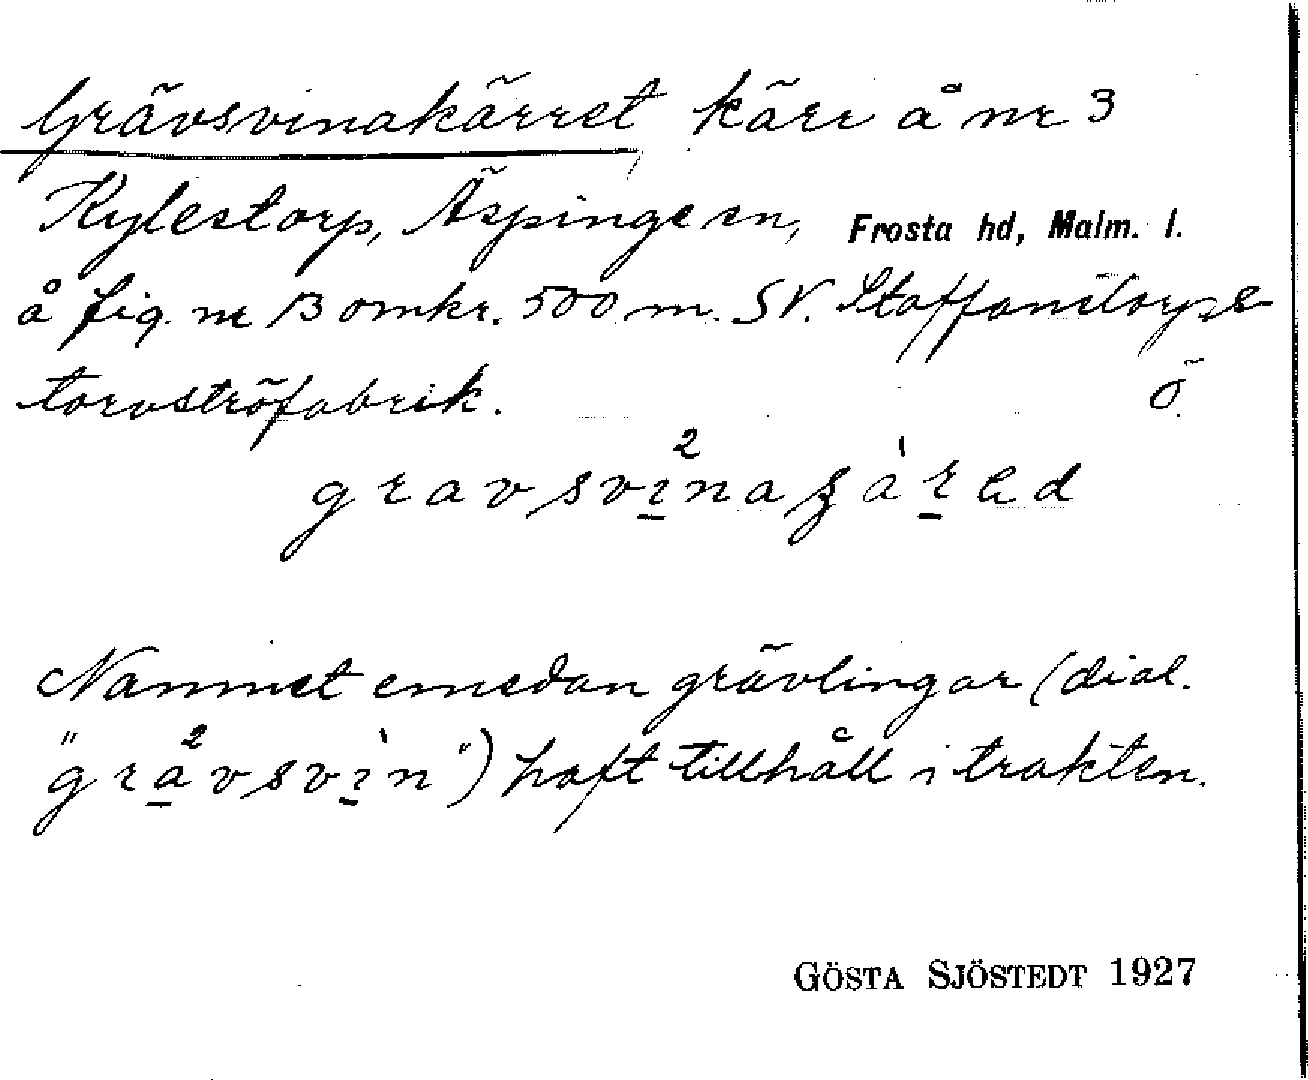 Grävsvinakärret kärr å nr 3
Kylestorp, Äspinge sn, Frosta hd, Malm. l.
å fig. nr 13 omkr. 500 m. SV. Staffanstorps
torvströfabrik. Ö
gravsvìna
Namnet emedan grävlingar (dial.
"gravsvìn") haft tillhåll i trakten.
GÖSTA SJÖSTEDT 1927